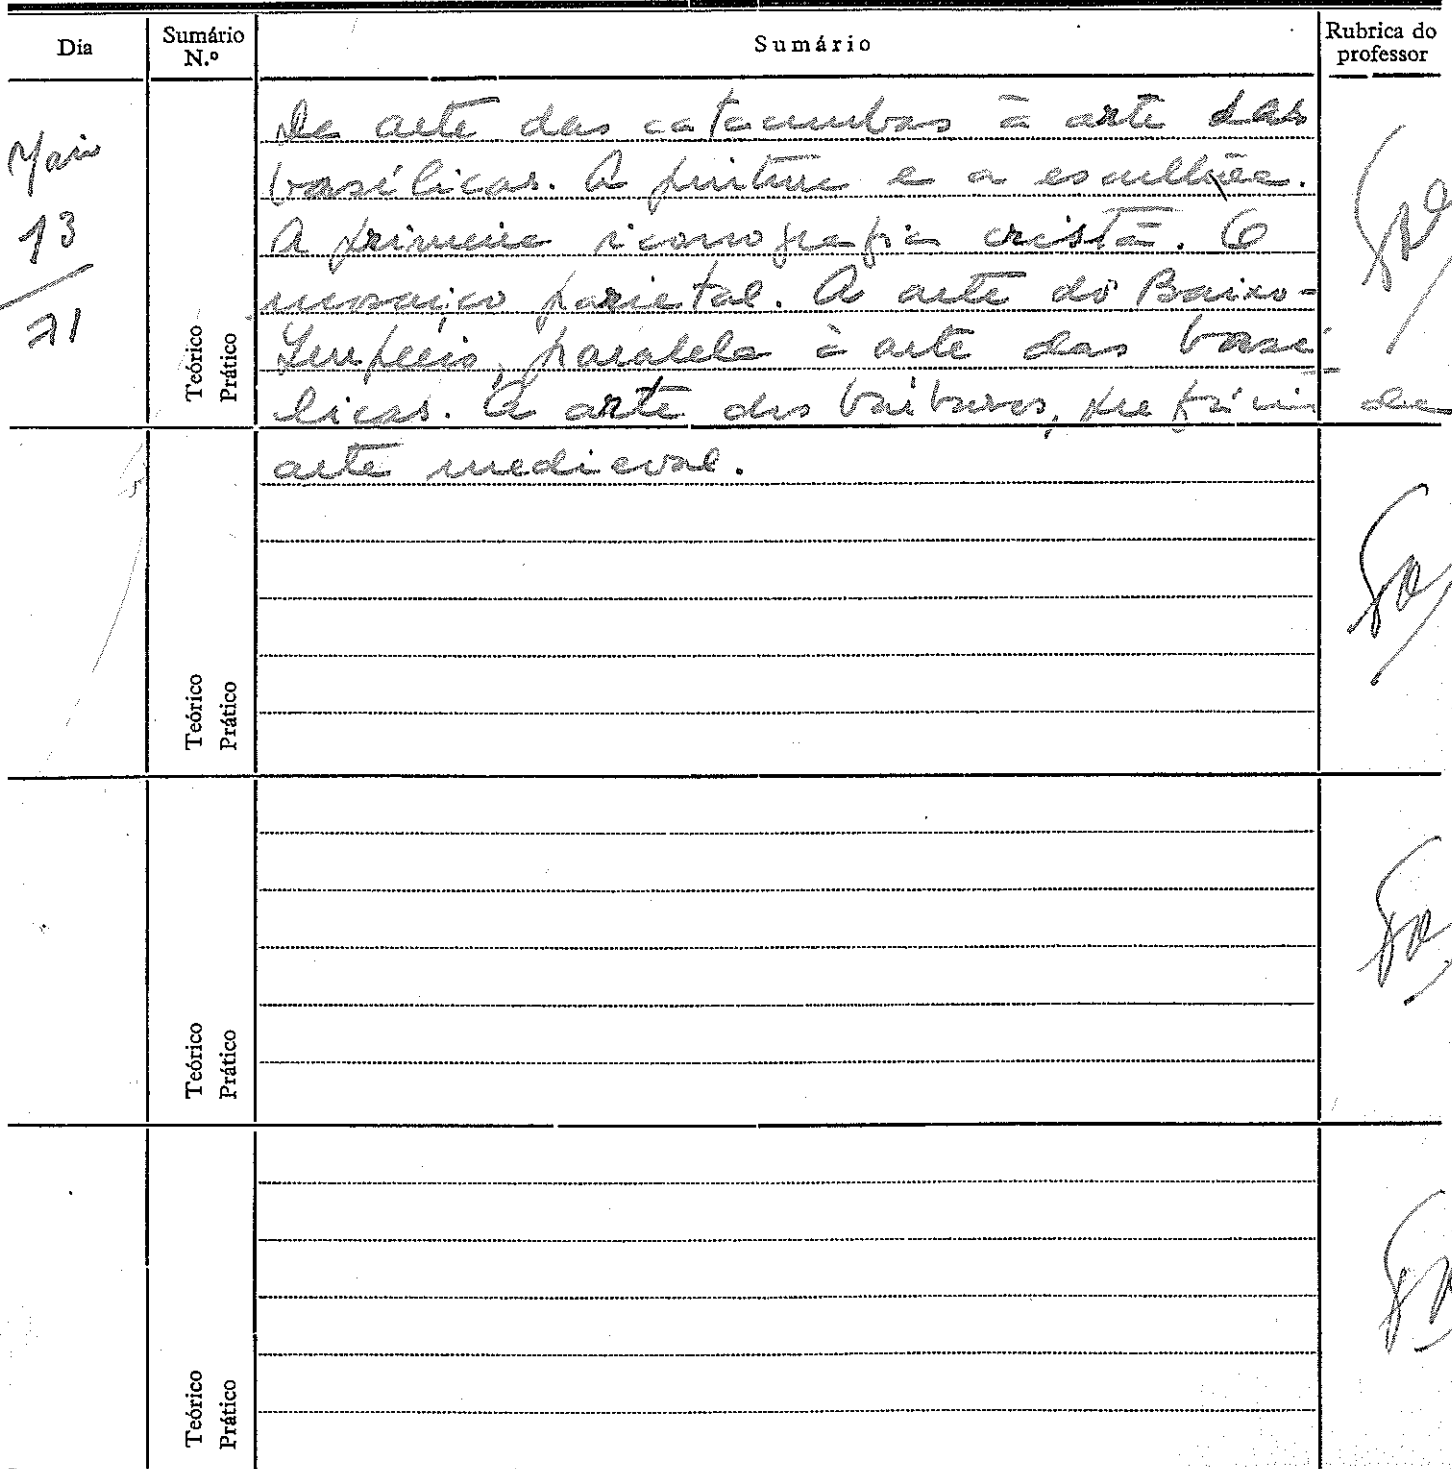 Dia
Sumário N.º
Sumário
Rubrica do professor
Maio
13
71
Teórico
Prático
Da arte das catacumbas à arte das
basílicas. A pintura e a escultura.
A primeira iconografia cristã. O
mosaico parietal. A arte do Baixo-
Império, paralela à arte das basí
licas. A arte dos bárbaros, da
arte medieval.
Teórico
Prático
Teórico
Prático
Teórico
Prático